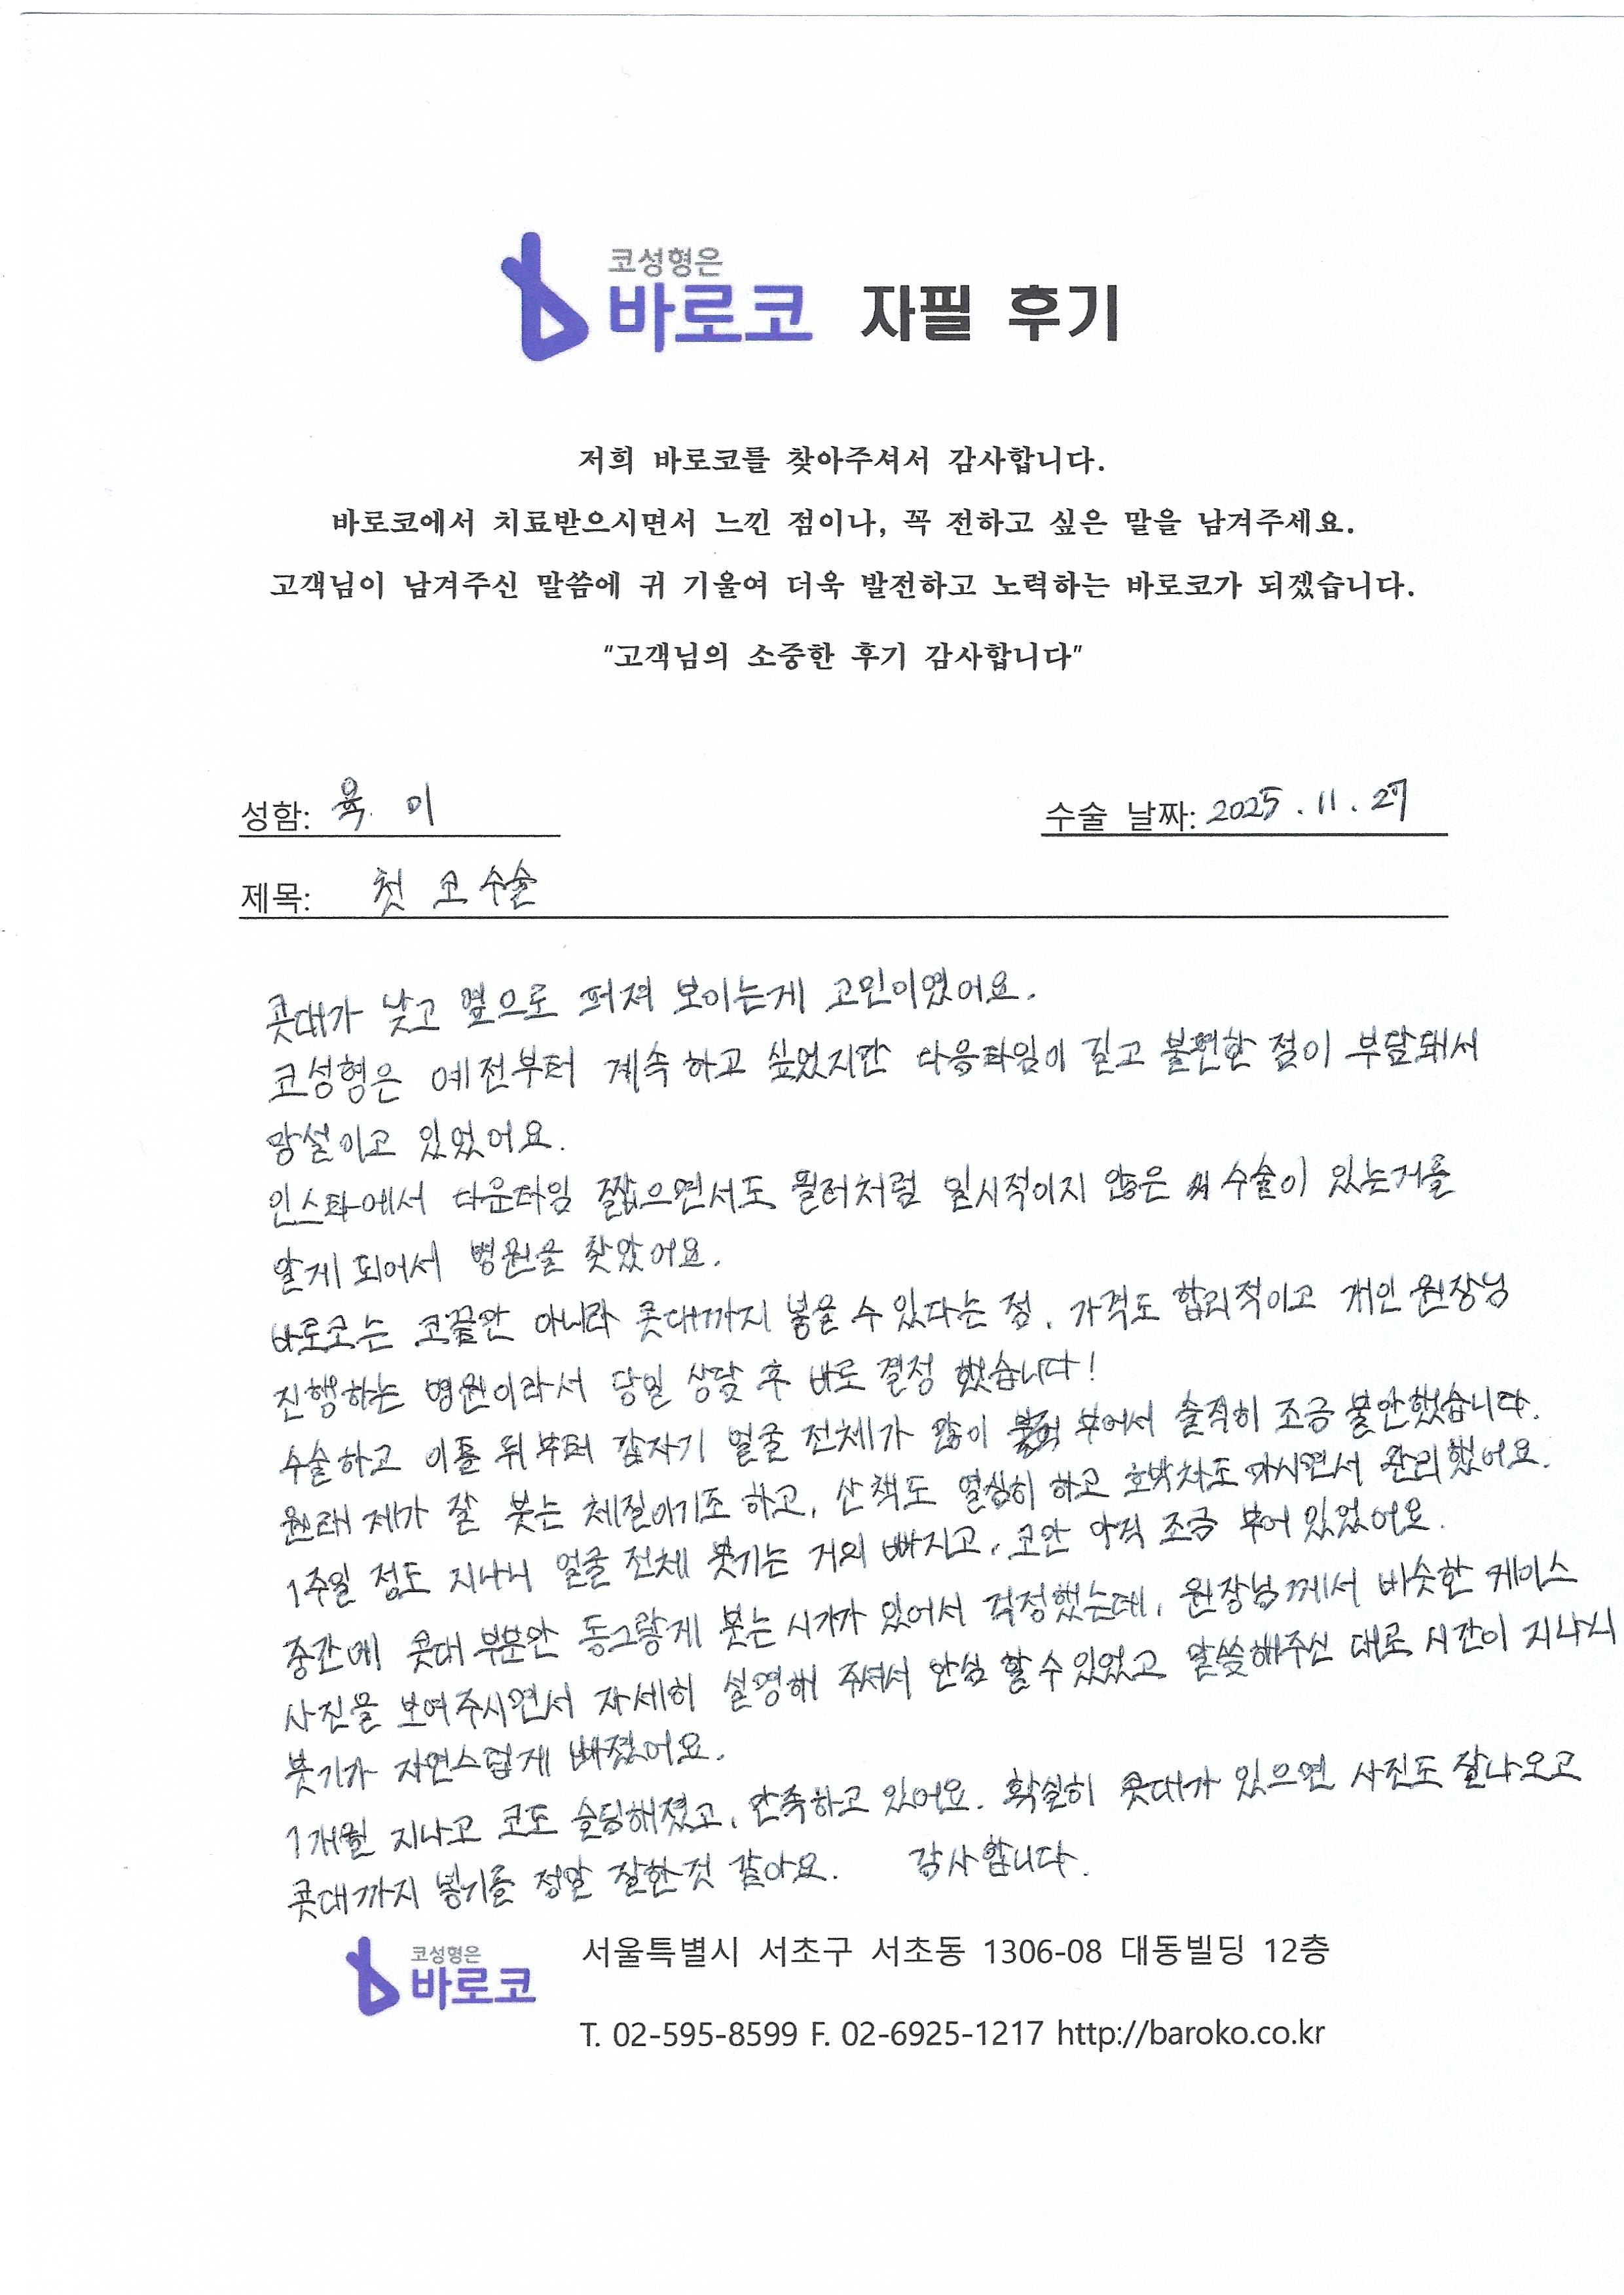 코성형은
바로코 자필 후기
저희 바로코를 찾아주셔서 감사합니다.
바로코에서 치료받으시면서 느낀 점이나, 꼭 전하고 싶은 말을 남겨주세요.
고객님이 남겨주신 말씀에 귀 기울여 더욱 발전하고 노력하는 바로코가 되겠습니다.
"고객님의 소중한 후기 감사합니다"
성함: 육 이 수술 날짜: 2025. 11. 27
제목: 첫 코 수술
콧대가 낮고 옆으로 퍼져 보이는게 고민이였어요.
코성형은 예전부터 계속 하고 싶었지만 다음타임이 길고 불편한 점이 부담돼서
망설이고 있었어요.
인스타에서 다운타임 짧으면서도 필러처럼 일시적이지 않은 수술이 있는거를
알게 되어서 병원을 찾았어요.
바로코는 코끝만 아니라 콧대까지 넣을 수 있다는 점, 가격도 합리적이고 개인 원장님
진행하는 병원이라서 당일 상담 후 바로 결정 했습니다!
수술하고 이틀 뒤부터 갑자기 얼굴 전체가 많이 부어서 솔직히 조금 불안했습니다.
원래 제가 잘 붓는 체질이기조 하고, 산책도 열심히 하고 호박차도 마시면서 관리했어요.
1주일 정도 지나니 얼굴 전체 붓기는 거의 빠지고, 코만 아직 조금 부어 있었어요.
중간에 콧대 부분만 동그랗게 붓는 시기가 있어서 걱정했는데, 원장님께서 비슷한 케이스
사진을 보여주시면서 자세히 설명해 주셔서 안심 할 수 있었고 말씀해주신 대로 시간이 지나니
붓기가 자연스럽게 빠졌어요.
1개월 지나고 코도 슬림해졌고, 만족하고 있어요. 확실히 콧대가 있으면 사진도 잘나오고
콧대까지 넣기를 정말 잘한것 같아요. 감사합니다.
코성형은
바로코
서울특별시 서초구 서초동 1306-08 대동빌딩 12층
T. 02-595-8599 F. 02-6925-1217 http://baroko.co.kr